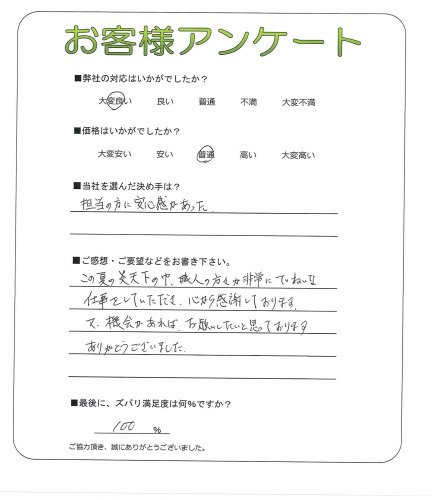 お客様アンケート
■弊社の対応はいかがでしたか？
大変良い 良い 普通 不満 大変不満
■価格はいかがでしたか？
大変安い 安い 普通 高い 大変高い
■当社を選んだ決め手は？
担当の方に安心感があった。
■ご感想・ご要望などをお書き下さい。
この夏の炎天下の中、職人の方々が非常にていねいな
仕事をしていただき、心から感謝しております。
機会があれば、お願いしたいと思っております
ありがとうございました。
■最後に、ズバリ満足度は何％ですか？
100 ％
ご協力頂き、誠にありがとうございました。